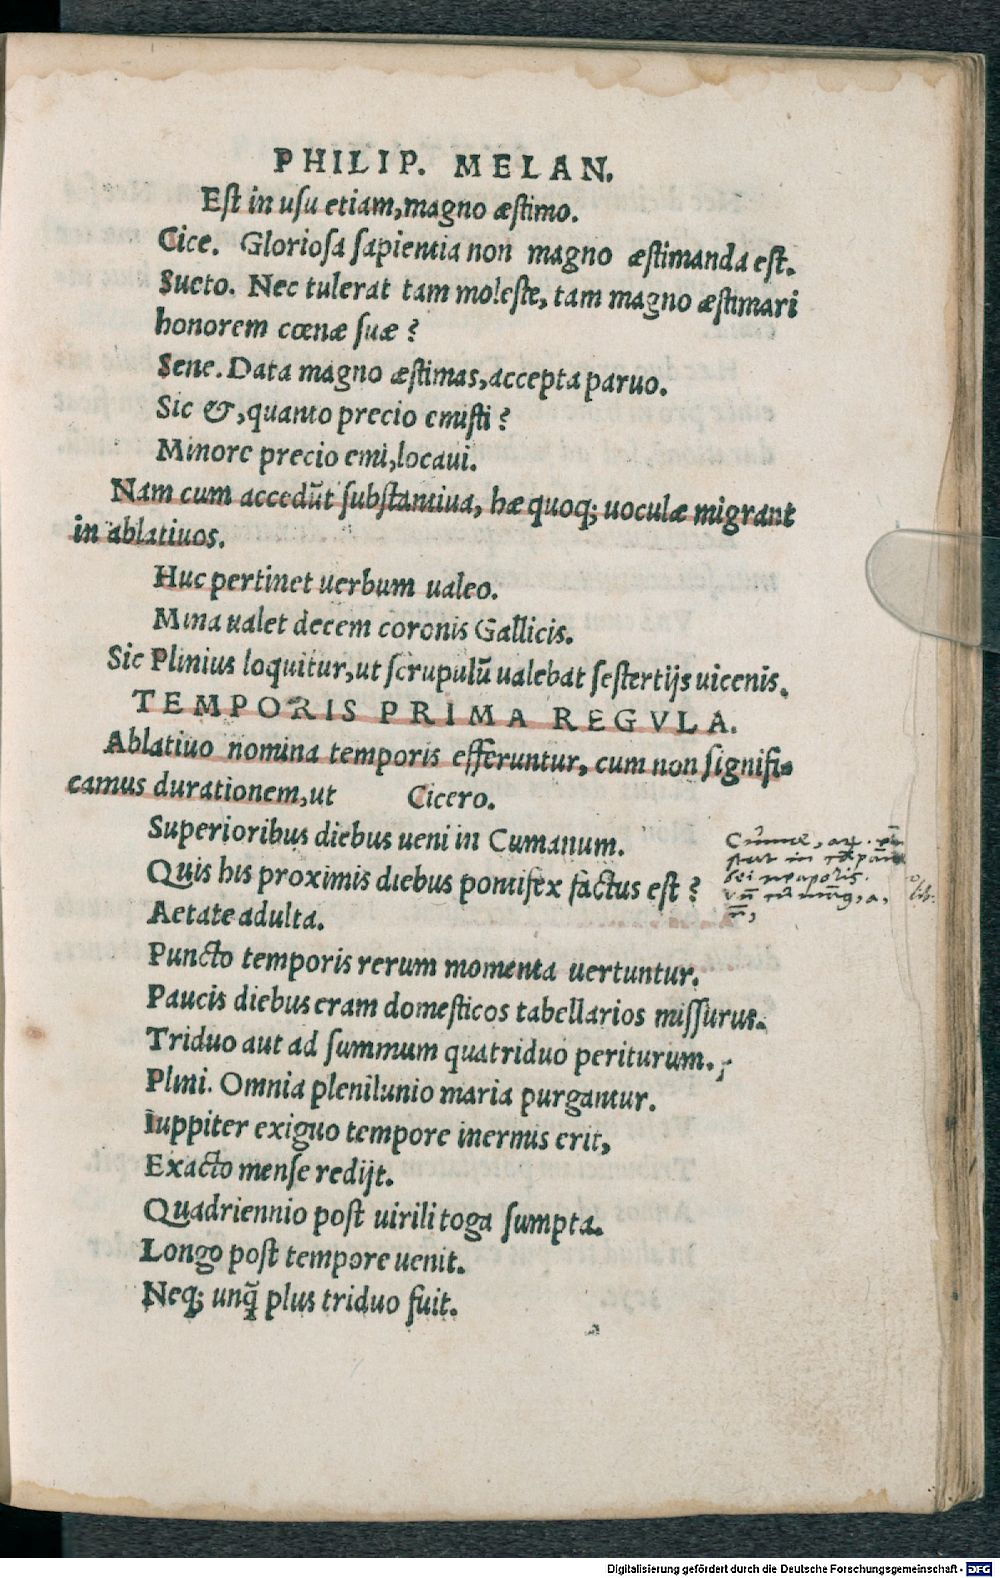 PHILIP. MELAN.
Est in usu etiam, magno æstimo.
Cice. Gloriosa sapientia non magno æstimanda est.
Sueto. Nec tulerat tam moleste, tam magno æstimari
honorem cœnæ suæ?
Sene. Data magno æstimas, accepta paruo.
Sic &, quanto precio emisti?
Minore precio emi, locaui.
Nam cum accedūt substantiua, hæ quoq; uoculæ migrant
in ablatiuos.
Huc pertinet uerbum ualeo.
Mina ualet decem coronis Gallicis.
Sic Plinius loquitur, ut scrupulū ualebat sestertijs uicenis.
TEMPORIS PRIMA REGVLA.
Ablatiuo nomina temporis efferuntur, cum non signifi-
camus durationem, ut Cicero.
Superioribus diebus ueni in Cumanum.
Quis his proximis diebus pontifex factus est?
Aetate adulta.
Puncto temporis rerum momenta uertuntur.
Paucis diebus eram domesticos tabellarios missurus.
Triduo aut ad summum quatriduo periturum.
Plini. Omnia plenilunio maria purgantur.
Iuppiter exiguo tempore inermis erit,
Exacto mense redijt.
Quadriennio post uirili toga sumpta.
Longo post tempore uenit.
Neq; unq̃ plus triduo fuit.
Digitalisierung gefördert durch die Deutsche Forschungsgemeinschaft - DFG